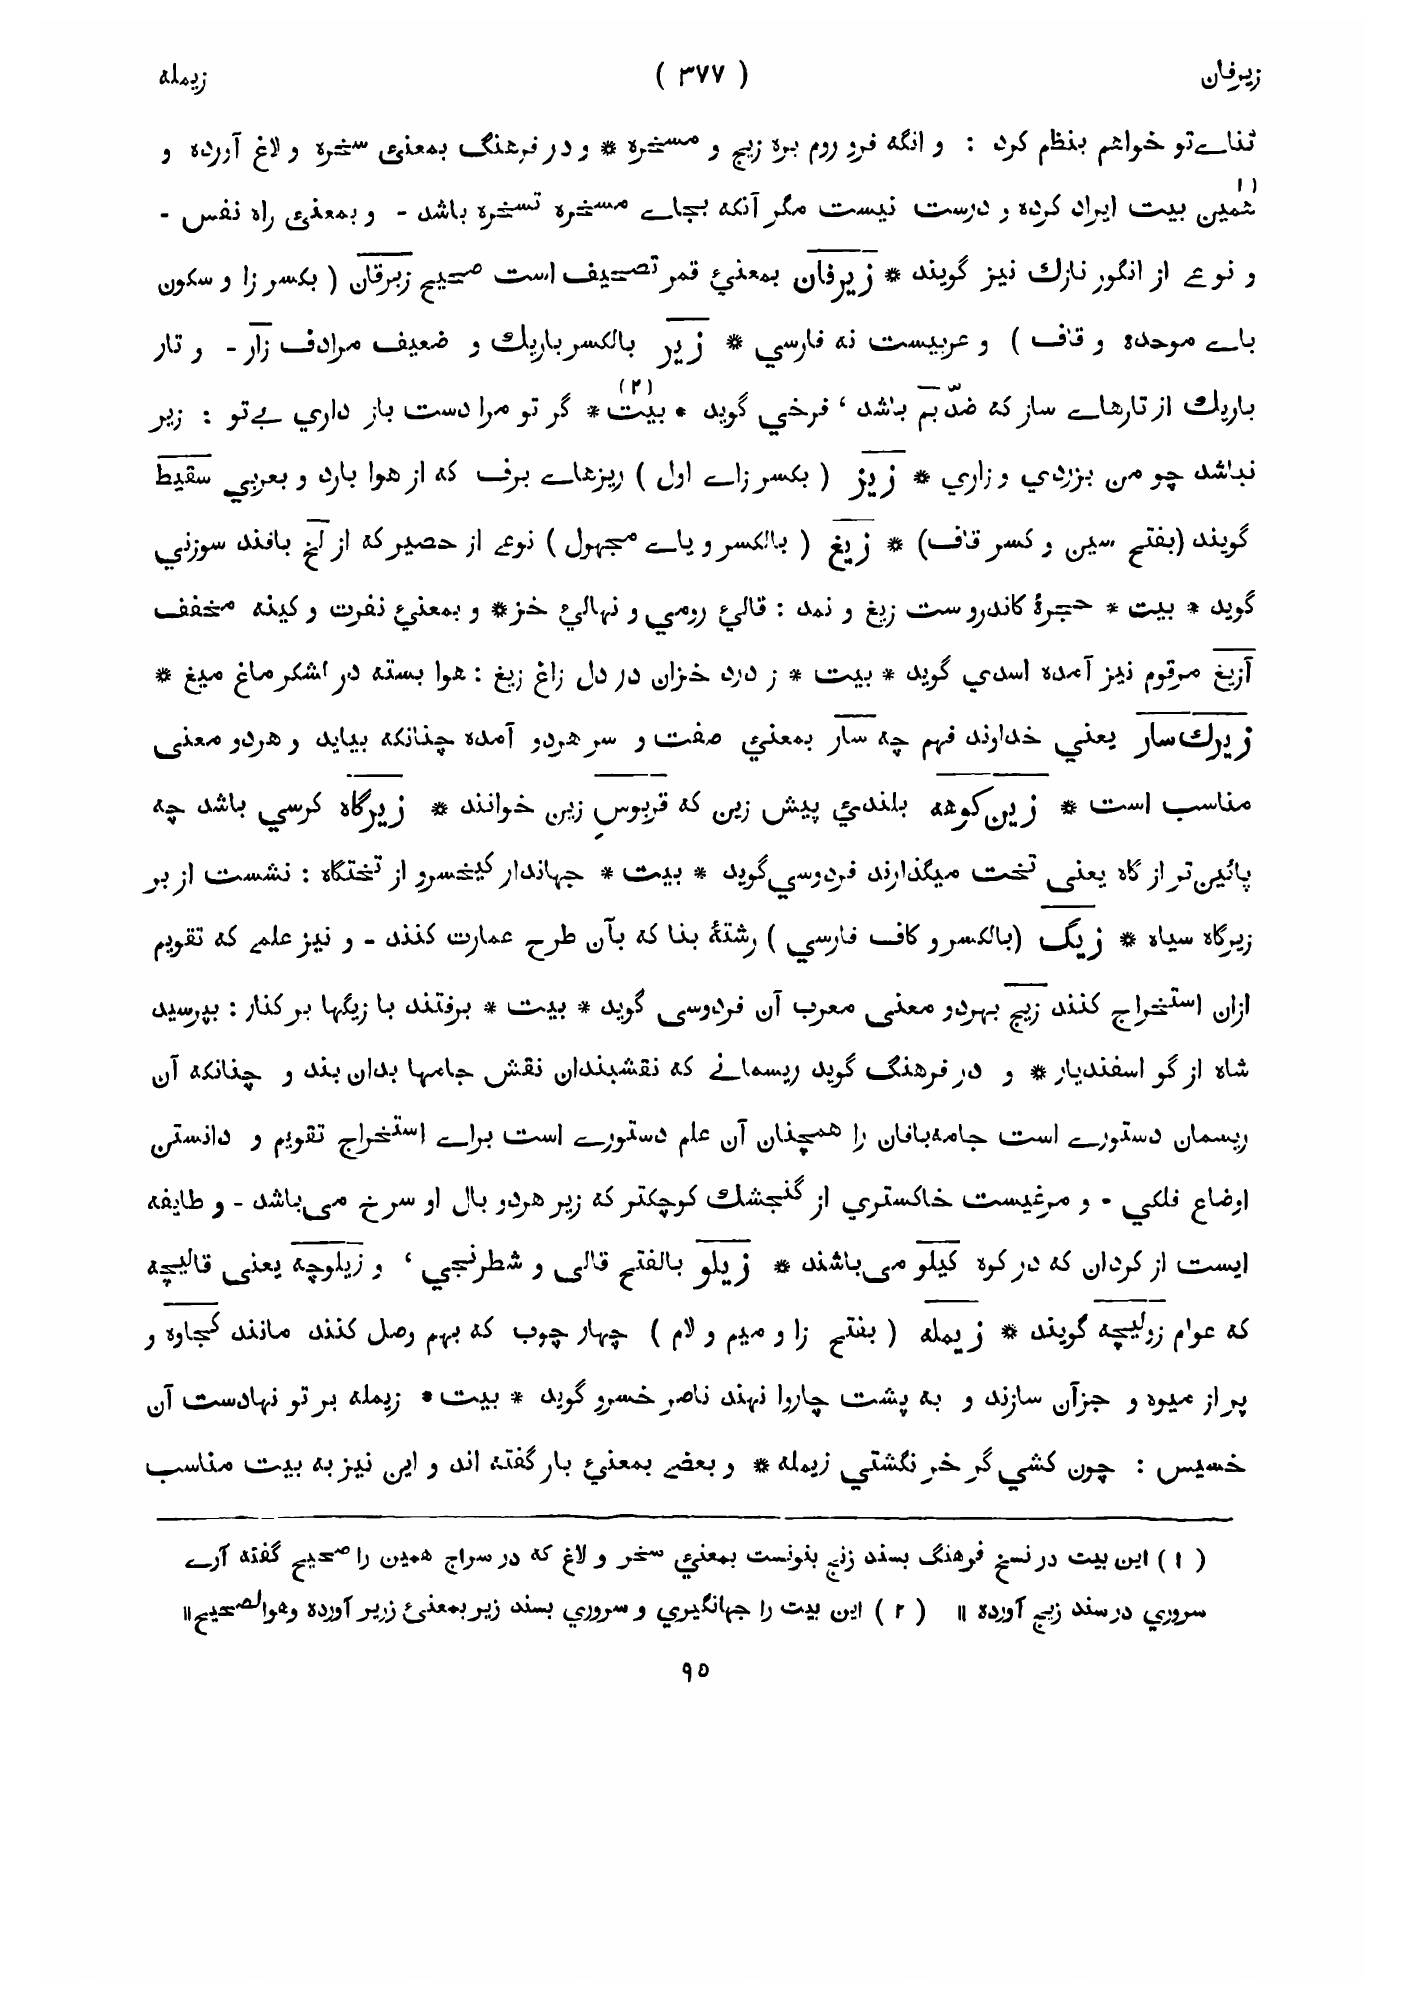 زیرفان ( ۳۷۷ ) زیمله
ثنای تو خواهم بنظم کرد : و انگه فرو روم بره زیچ و مسخره * و در فرهنگ بمعنی سخره و لاغ آورده و
(۱)
همین بیت ایراد کرده و درست نیست مگر آنکه بجای مسخره تسخره باشد - و بمعنی راه نفس -
و نوعی از انگور نازك نیز گویند * زیرفان بمعنیٔ قمر تصحیف است صحیح زبرقان ( بکسر زا و سکون
بای موحده و قاف ) و عربیست نه فارسی * زیر بالکسر باریك و ضعیف مرادف زار - و تار
باریك از تارهای ساز که ضدّ بم باشد ، فرخی گوید * بیت * (۲) گر تو مرا دست باز داری بی تو : زیر
نباشد چو من بزردی و زاری * زیز ( بکسر زای اول ) ریزهای برف که از هوا بارد و بعربی سقیط
گویند (بفتح سین و کسر قاف) * زیغ ( بالکسر و یای مجهول ) نوعی از حصیر که از لخ بافند سوزنی
گوید * بیت * حجرهٔ کاندرو ست زیغ و نمد : قالیٔ رومی و نهالیٔ خز * و بمعنیٔ نفرت و کینه مخفف
آزیغ مرقوم نیز آمده اسدی گوید * بیت * ز درد خزان در دل زاغ زیغ : هوا بسته در لشکر ماغ میغ *
زیرك سار یعنی خداوند فهم چه سار بمعنیٔ صفت و سر هردو آمده چنانکه بیاید و هردو معنی
مناسب است * زین کوهه بلندیٔ پیش زین که قربوس زین خوانند * زیرگاه کرسی باشد چه
پائین تر از گاه یعنی تخت میگذارند فردوسی گوید * بیت * جهاندار کیخسرو از تختگاه : نشست از بر
زیرگاه سیاه * زیگ (بالکسر و کاف فارسی ) رشتهٔ بنا که بآن طرح عمارت کنند - و نیز علمی که تقویم
ازان استخراج کنند زیچ بهردو معنی معرب آن فردوسی گوید * بیت * برفتند با زیگها بر کنار : بپرسید
شاه از گو اسفندیار * و در فرهنگ گوید ریسمانی که نقشبندان نقش جامها بدان بند و چنانکه آن
ریسمان دستوری است جامه بافان را همچنان آن علم دستوری است برای استخراج تقویم و دانستن
اوضاع فلکی - و مرغیست خاکستری از گنجشك کوچکتر که زیر هردو بال او سرخ می باشد - و طایفه
ایست از کردان که در کوه کیلو می باشند * زیلو بالفتح قالی و شطرنجی ، و زیلوچه یعنی قالیچه
که عوام زولیچه گویند * زیمله ( بفتح زا و میم و لام ) چهار چوب که بهم وصل کنند مانند کجاوه و
پر از میوه و جزآن سازند و به پشت چاروا نهند ناصر خسرو گوید * بیت * زیمله بر تو نهادست آن
خسیس : چون کشی گر خر نگشتی زیمله * و بعضی بمعنیٔ بار گفته اند و این نیز به بیت مناسب
( ۱ ) این بیت در نسخ فرهنگ بسند زنج بنونست بمعنیٔ سخر و لاغ که در سراج همین را صحیح گفته آری
سروری در سند زیچ آورده ॥ ( ۲ ) این بیت را جهانگیری و سروری بسند زیر بمعنیٔ زریر آورده وهوالصحیح ॥
۹۵